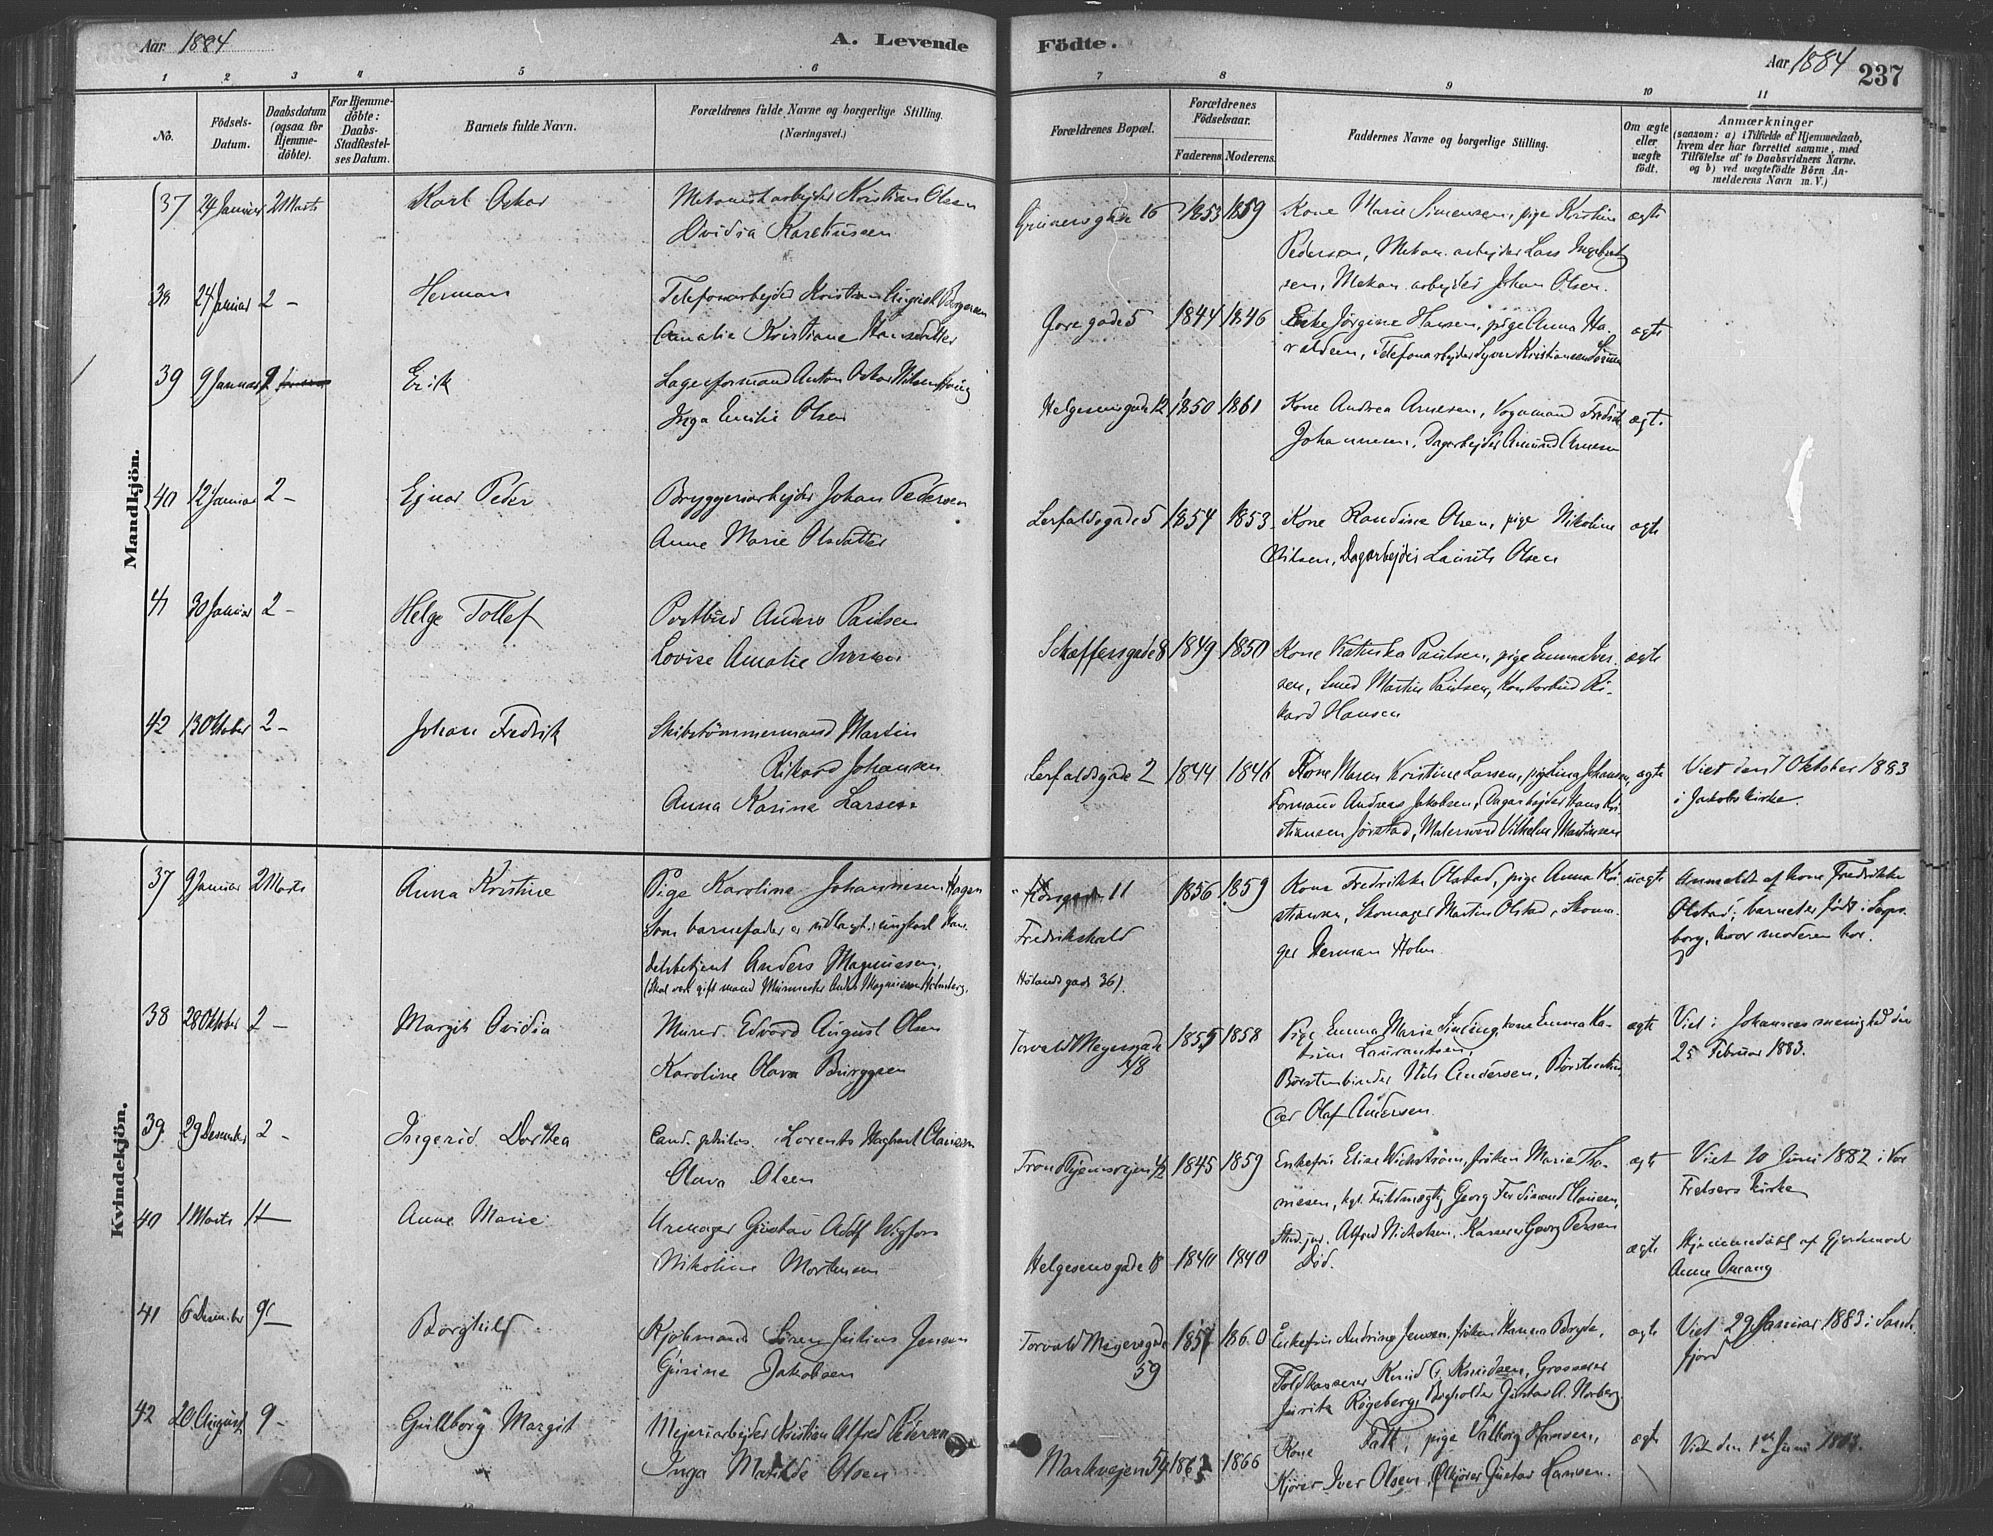 Aar 1884
A. Levende
Födte.
Aar 1884
237
1 2 3 4 5 6 7 8 9 10 11
No.
Födsels-Datum.
Daabsdatum (ogsaa for Hjemme-döbte).
For Hjemme-döbte: Daabs-Stadfæstel-ses Datum.
Barnets fulde Navn.
Forældrenes fulde Navne og borgerlige Stilling.
(Næringsvei.)
Forældrenes Bopæl.
Forældrenes Födselsaar.
Faderens. Moderens.
Faddernes Navne og borgerlige Stilling.
Om ægte eller uægte födt.
Anmærkninger
(saasom: a) i Tilfælde af Hjemmedaab, hvem der har forrettet samme, med Tilföielse af to Daabsvidners Navne. og b) ved uægtefödte Börn An-melderens Navn m. V.)
Mandkjön.
37 24 Januar 2 Marts Karl Oskar Mekanisk arbejder Kristian Olsen
Ovidia Karelinssen
Grünersgade 16 1853 1859 Kone Marie Simensen, pige Kristine
Pedersen, Mekan. arbejder Lars Ingebret
sen, Mekan. arbejder Johan Olsen. ægte
38 24 Januar 2 - Herman Telefonarbejder Kristian August Borgersen
Amalie Kristiane Hansdatter
gade 5 1844 1846 Enke Jørgine Hansen, pige Anna Ha-
raldsen, Telefonarbejder Kristiansen ægte
39 9 Januar 2 Erik Lagerformand Anton Oskar Nilsen
Inga Emilie Olsen
Helgesensgade 12 1850 1861 Kone Andrea Arnesen, Vognmand Fredrik
Johannesen, Dagarbejder Amund Arnesen ægt.
40 12 Januar 2 - Ejnar Peder Bryggeriarbejder Johan Pedersen
Anne Marie Olsdatter
Lerfaldsgade 5 1854 1853 Kone Randine Olsen, pige Nikoline
Nilsen, Dagarbejder Laurits Olsen ægte
41 30 Januar 2 - Helge Tollef Postbud Anders Paulsen
Lovise Amalie Iversen
Schæffersgade 8 1849 1850 Kone Paulsen, pige Emma Iver-
sen, Smed Martin Paulsen, Kontorbud Ri-
kard Hansen ægte
42 13 Oktober 2 - Johan Fredrik Skibstömmermand Martin
Rikard Johansen
Anna Karina Larsen
Lerfaldsgade 2 1844 1846 Kone Maren Kristine Larsen, pige Lina Johansen,
Formand Andreas Jakobsen, Dagarbejder Hans Kri
stiansen Jørstad, Malersvend Vilhelm Martinsen ægte
Viet den 7 Oktober 1883
i Jakobs kirke.
Kvindekjön.
37 9 Januar 2 Marts Anna Kristine Pige Karoline Johannesen Hagen
Som barnefader er udlagt: ungkarl Han-
delsbetjent Anders Magnussen.
11
Fredrikshald
36). 1856 1859 Kone Fredrikke Olstad, pige Anna Kri
stiansen, Skomager Martin Olstad, Skoma
ger Herman Holm uægte
Anmeldt af kone Fredrikke
Olstad; barnet er födt i Sarps-
borg, hvor moderen bor.
38 28 Oktober 2 - Margit Ovidia Murer Edvard August Olsen
Karoline Olava Bryggsen
Torvald Meyersgade
48 1855 1858 Pige Emma Marie kone Emma Ka-
trine Laurantsen,
Børstenbinder Nils Andersen, Børstenbin
der Olaf Andersen. ægte
Viet i Johannes menighed den
25 Februar 1883.
39 29 Desember 2 - Ingerid Dortea Cand. philos. Lorents Claussen
Olava Olsen
Trondhjemsvejen 1845 1859 Enkefru Elise Wickstrøm, frøken Marie Tho-
mesen, kgl. Fuldmægtig Georg Ferdinand Clausen,
Stud. jur. Alfred Nickelsen, Kasserer Georg ægte
Viet 10 Juni 1882 i Vor
Frelsers kirke
40 1 Marts 4 - Anne Marie Urmager Gustav Adolf Wigfors
Nikoline Mortensen
Helgesensgade 18 1840 1840 Död. ægte
Hjemmedöbt af Gjordemor
Anne Omang
41 6 Desember 9 - Borghild Kjöbmand Søren Julius Jensen
Gusine Jakobsen
Torvald Meyersgade
59 1857 1860 Enkefru Andrine Jensen, frøken Hanna Berge,
Toldkasserer Knud G. Knudsen, Grosserer
Røgeberg, Bogholder Gustav A. Norberg ægte
Viet 29 Januar 1883 i Sande-
fjord
42 20 August 9 - Gullborg Margit Mejeriarbejder Kristian Alfred Pedersen
Inga Matilde Olsen
Markvejen 54 1862 1866 Kone Falk, pige Valborg Hansen,
Kjører Iver Olsen, Ølkjører Gustav Hansen. ægte
Viet den 1st Juni 1883.